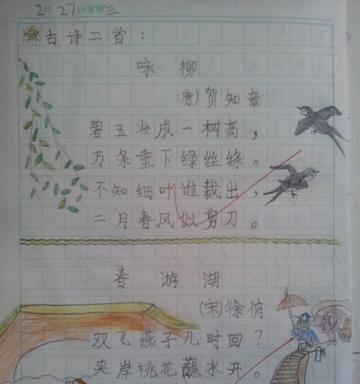 2月27日星期三
古诗二首：
咏柳
(唐)贺知章
碧玉妆成一树高，
万条垂下绿丝绦。
不知细叶谁裁出，
二月春风似剪刀。
春游湖
(宋)徐俯
双飞燕子几时回？
夹岸桃花蘸水开。